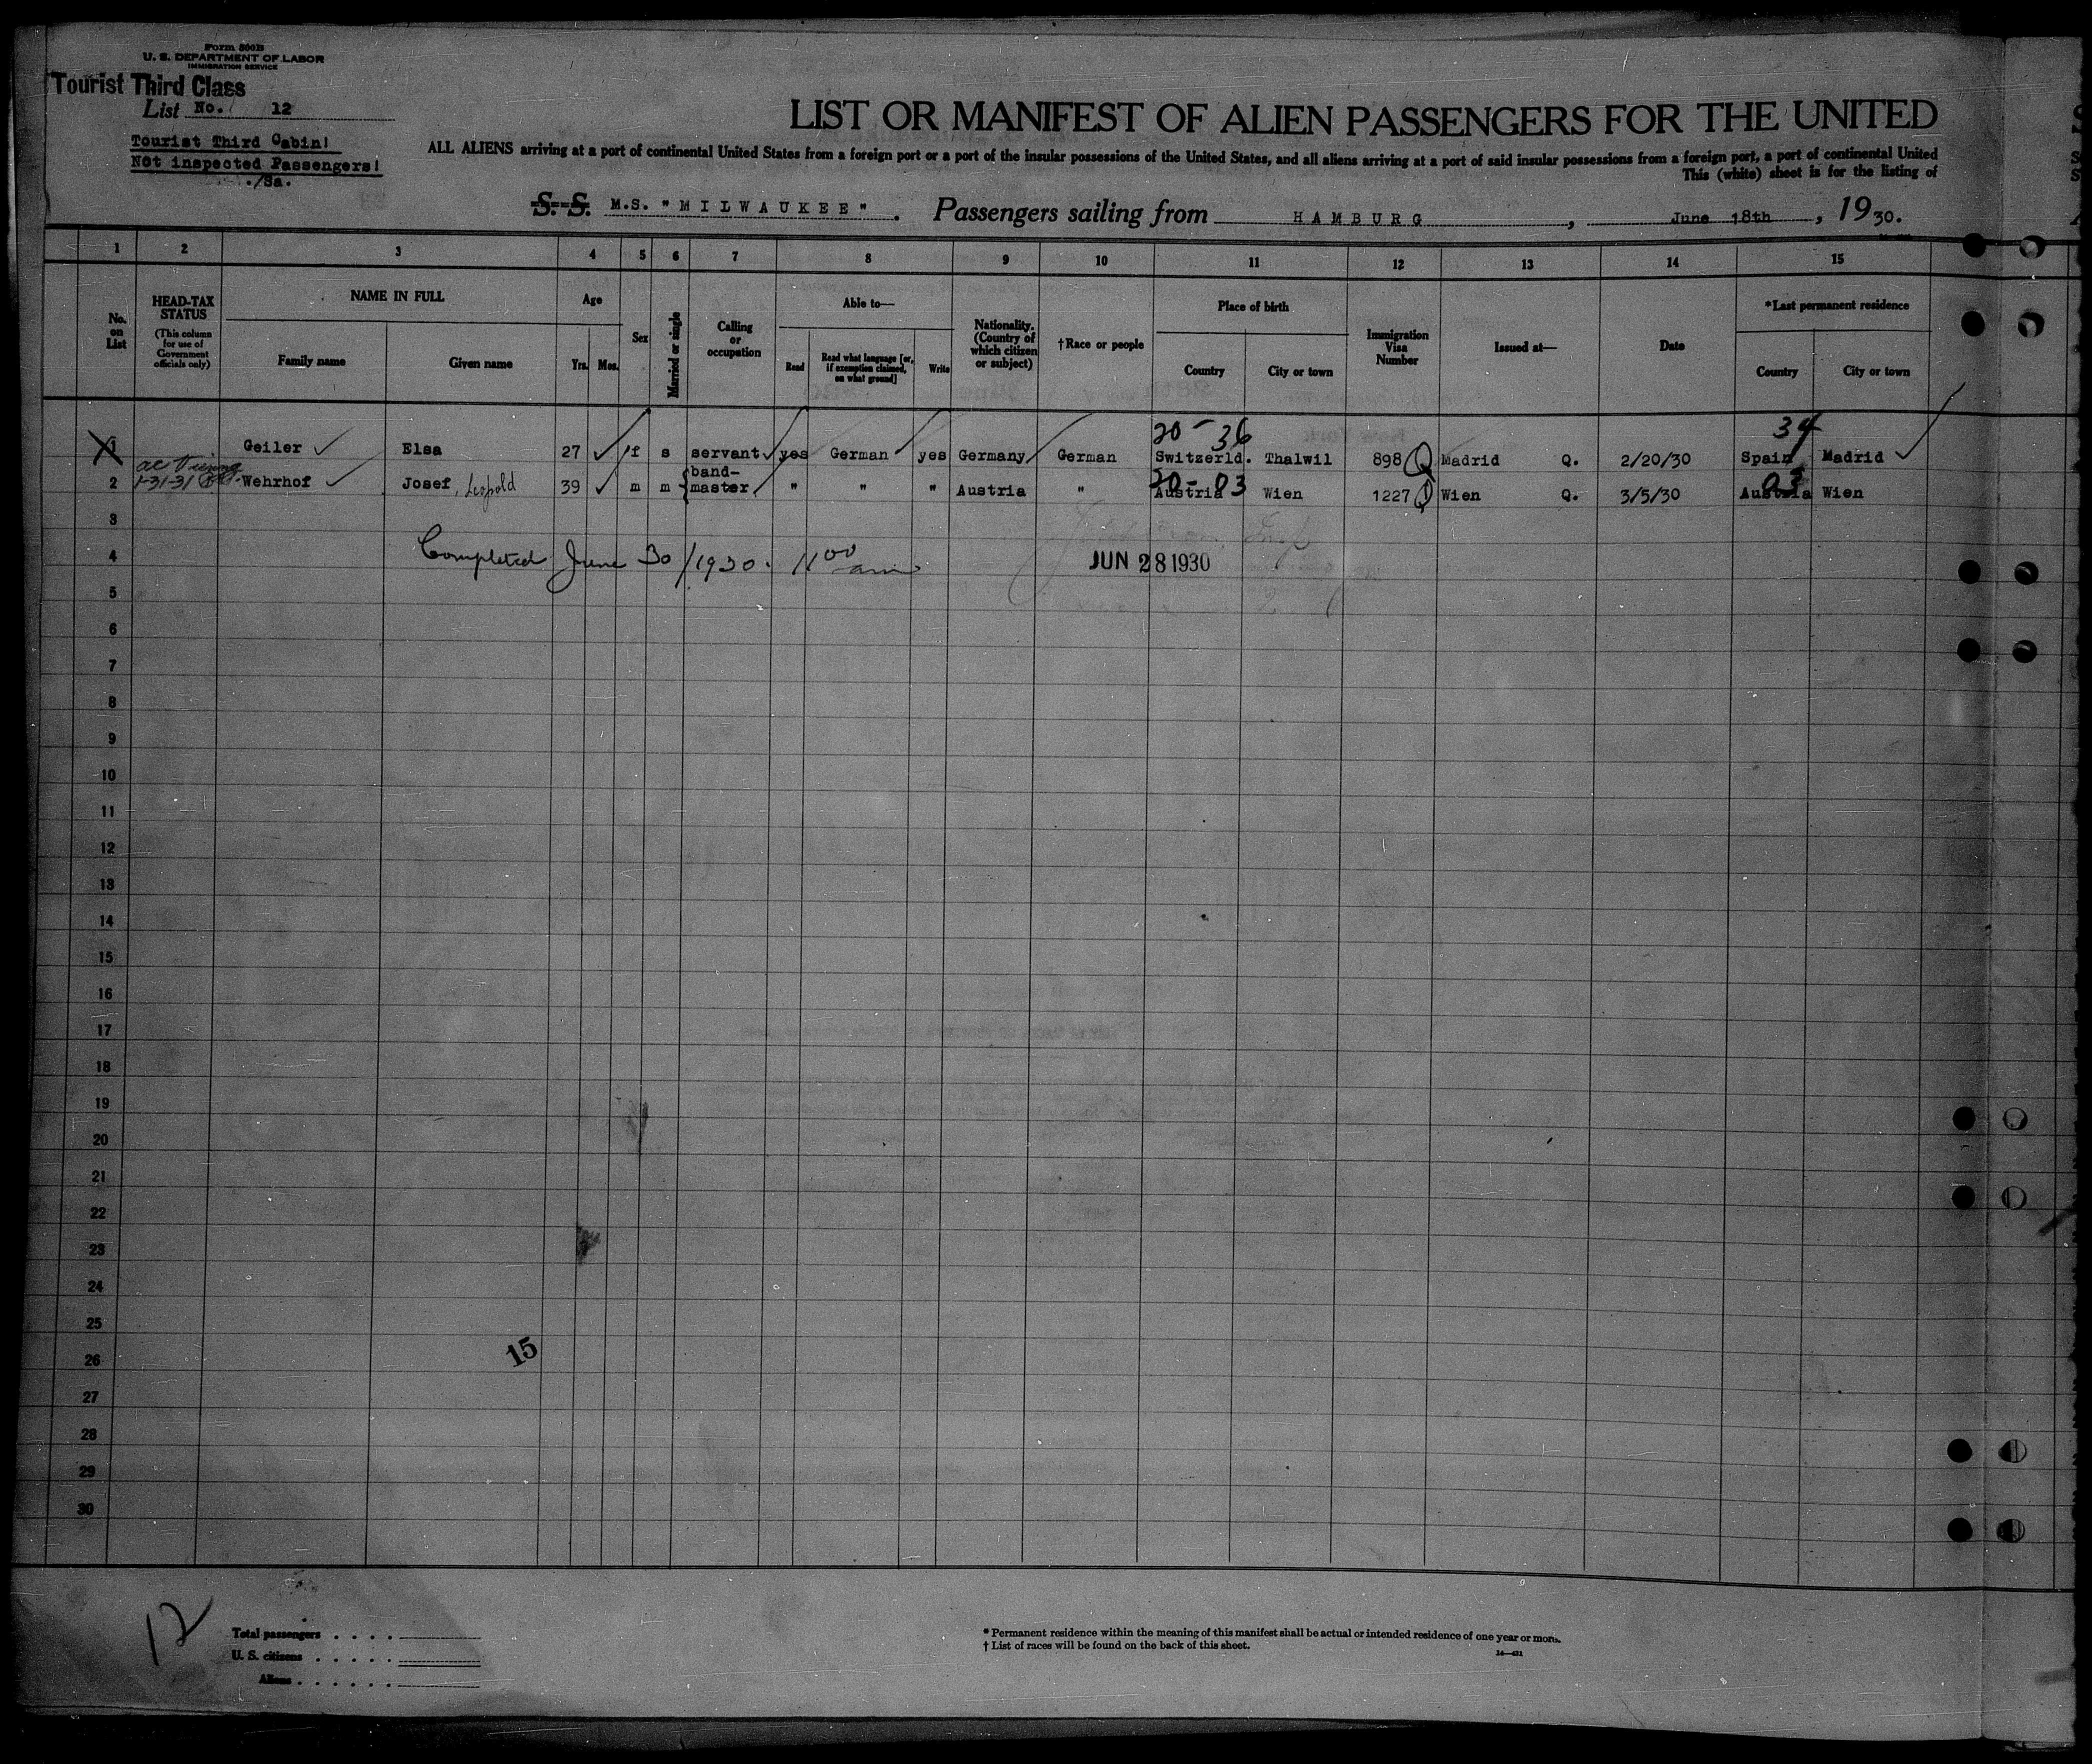 Form 500B
U. S. DEPARTMENT OF LABOR
IMMIGRATION SERVICE
Tourist Third Class
List No. 12
Tourist Third Cabin!
Not inspected Passengers!
./Sa.
LIST OR MANIFEST OF ALIEN PASSENGERS FOR THE UNITED
ALL ALIENS arriving at a port of continental United States from a foreign port or a port of the insular possessions of the United States, and all aliens arriving at a port of said insular possessions from a foreign port, a port of continental United
This (white) sheet is for the listing of
S. S. M.S. "MILWAUKEE". Passengers sailing from HAMBURG, June 18th, 1930.
1 2 3 4 5 6 7 8 9 10 11 12 13 14 15
No. on List
HEAD-TAX STATUS
(This column for use of Government officials only)
NAME IN FULL
Family name
Given name
Age
Yrs. Mos.
Sex
Married or single
Calling or occupation
Able to—
Read
Read what language [or, if exemption claimed, on what ground]
Write
Nationality. (Country of which citizen or subject)
†Race or people
Place of birth
Country
City or town
Immigration Visa Number
Issued at—
Date
*Last permanent residence
Country
City or town
20-36 34
1 Geiler Elsa 27 f s servant yes German yes Germany German Switzerld. Thalwil 898 Q Madrid Q. 2/20/30 Spain Madrid
1-31-31
20-03 03
2 Wehrhof Josef, Leopold 39 m m band-master " " " Austria " Austria Wien 1227 Q Wien Q. 3/5/30 Austria Wien
3
4 Completed June 30/1930. 11 00 am JUN 28 1930
5
6
7
8
9
10
11
12
13
14
15
16
17
18
19
20
21
22
23
24
25
15
26
27
28
29
30
12
Total passengers . . . .
U. S. citizens . . . . .
Aliens . . . . . .
* Permanent residence within the meaning of this manifest shall be actual or intended residence of one year or more.
† List of races will be found on the back of this sheet.
14—431